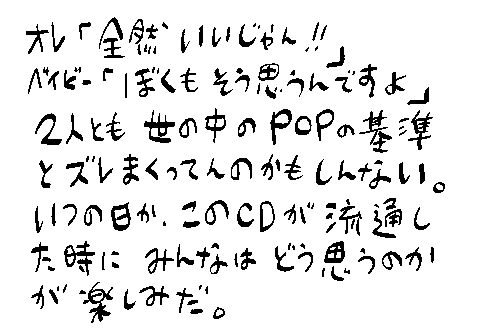 オレ「全然 いいじゃん!!」
ベイビー「ぼくも そう思うんですよ」
2人とも 世の中の POPの基準
とズレまくってんのかもしんない。
いつの日か、このCDが流通し
た時に みんなは どう思うのか
が楽しみだ。